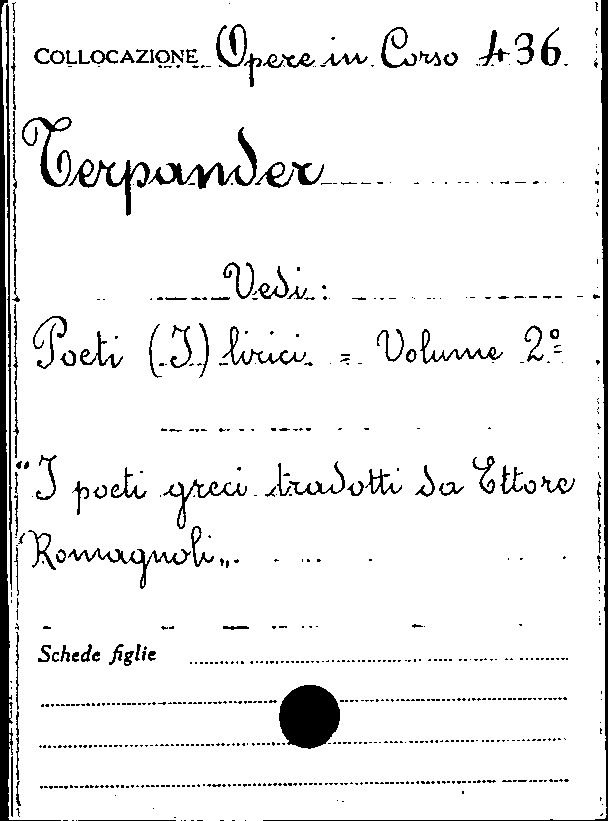 COLLOCAZIONE Opere in Corso 436
Terpander
Vedi:
Poeti (I) lirici = Volume 2º
"I poeti greci tradotti da Ettore
Romagnoli„.
Schede figlie